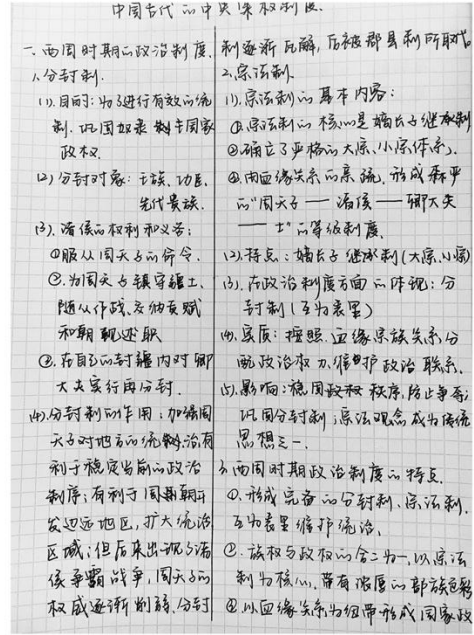 中国古代的中央集权制度.
一、西周时期的政治制度.
1.分封制.
(1).目的:为了进行有效的统
制.巩固奴隶制国家
政权.
(2)分封对象:王族、功臣、
先代贵族.
(3).诸侯的权利和义务:
①服从周天子的命令.
②.为周天子镇守疆土、
随从作战、交纳贡赋
和朝觐述职
③.在自己的封疆内对卿
大夫实行再分封.
(4).分封制的作用:加强周
天子对地方的统治,有
利于稳定当前的政治
制序;有利于周期开
发边远地区,扩大统治
区域;但后来出现了诸
侯争霸战争,周天子的
权威逐渐削弱.分封
制逐渐瓦解,后被郡县制所取代
2.宗法制.
(1).宗法制的基本内容:
①.宗法制的核心是嫡长子继承制
②确立了严格的大宗、小宗体系.
③.由血缘关系的亲疏,形成森严
的"周天子——诸侯——卿大夫
——士"的等级制度.
(2).特点:嫡长子继承制(大宗、小宗)
(3).在政治制度方面的体现:分
封制(互为表里)
(4).实质:按照血缘宗族关系分
配政治权力,维护政治联系.
(5).影响:稳固政权秩序,防止争夺;
巩固分封制;宗法观念成为传统
思想之一.
3.西周时期政治制度的特点.
①.形成完备的分封制、宗法制.
互为表里维护统治.
②.族权与政权的合二为一,以宗法
制为核心,带有浓厚的部族色彩
③.以血缘关系为纽带形成国家政